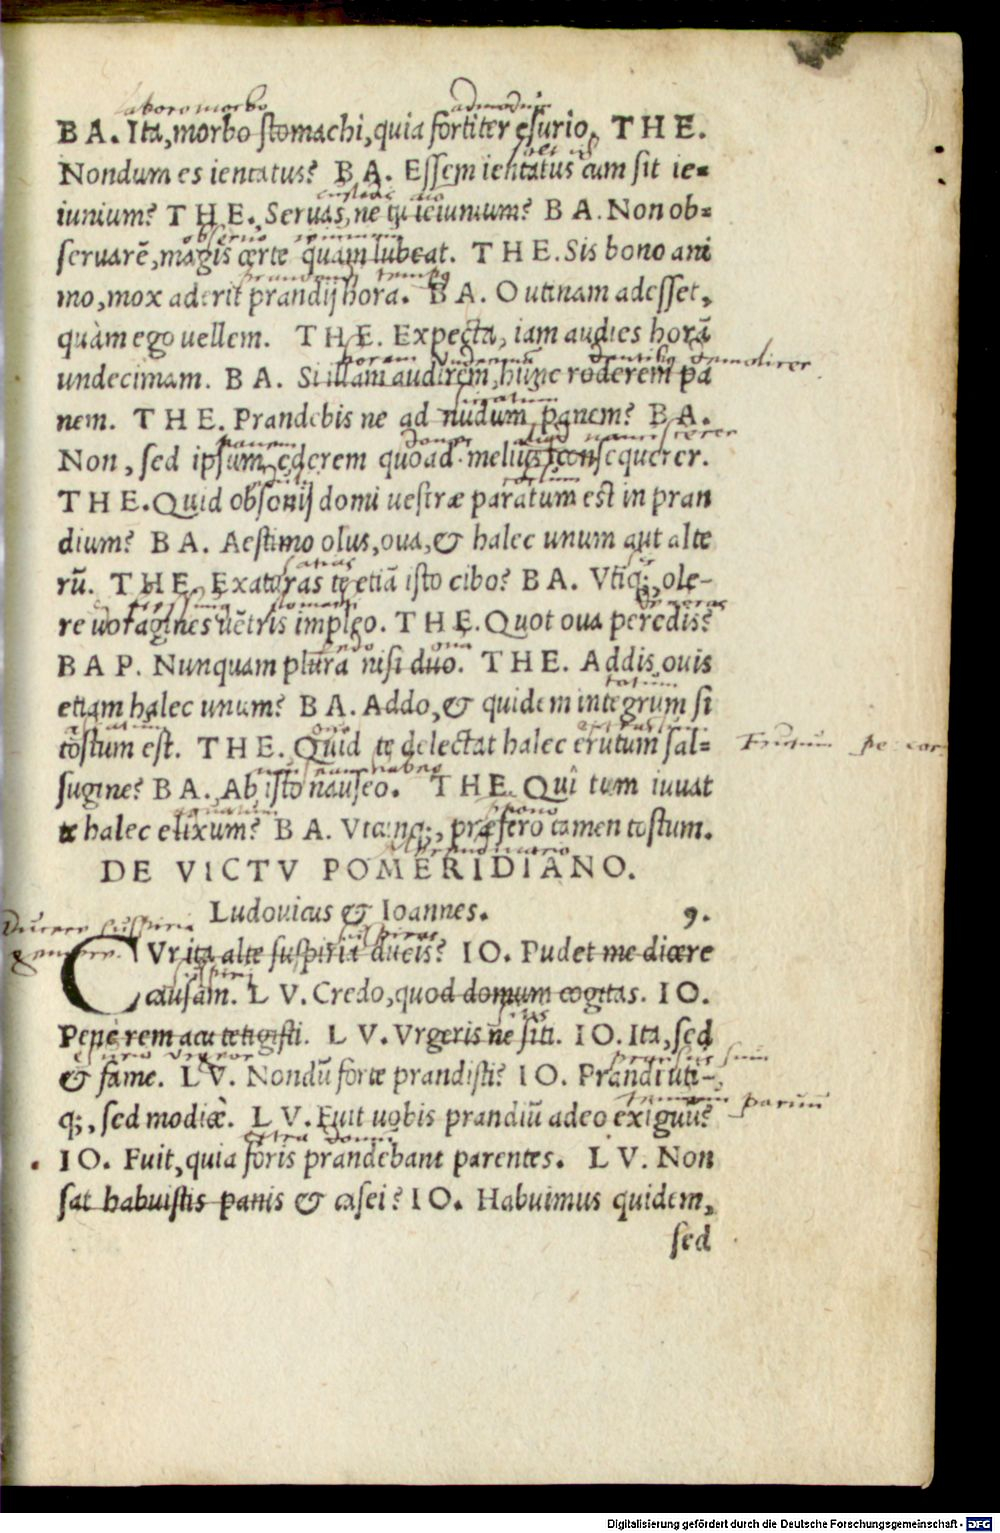 laboro morbo admodum
B A. Ita, morbo stomachi, quia fortiter esurio. T H E.
Nondum es ientatus? B A. Essem ientatus cum sit ie=
iunium? T H E. Seruas, ne tu ieiunium? B A. Non ob=
obseruo
seruarē, magis certe quam lubeat. T H E. Sis bono ani
tempus
mo, mox aderit prandij hora. B A. O utinam adesset,
quàm ego uellem. T H E. Expecta, iam audies horā
horam dentibus demolirer
undecimam. B A. Si illam audirem, hunc roderem pa
nem. T H E. Prandebis ne ad nudum panem? B A.
panem donec nanciscerer
Non, sed ipsum ederem quoad melius consequerer.
T H E. Quid obsonij domi uestræ paratum est in pran
dium? B A. Aestimo olus, oua, & halec unum aut alte
satias
rū. T H E. Exaturas te etiā isto cibo? B A. Vtiq;, ole-
deuoras
re uoragines uētris impleo. T H E. Quot oua peredis?
edo oua
B A P. Nunquam plura nisi duo. T H E. Addis ouis
totum
etiam halec unum? B A. Addo, & quidem integrum si
tostum est. T H E. Quid te delectat halec erutum sal=
sugine? B A. Ab isto nauseo. T H E. Quî tum iuuat
te halec elixum? B A. Vtcunq;, præfero tamen tostum.
DE VICTV POMERIDIANO.
Ludouicus & Ioannes. 9.
Ducere suspiria
gemere. suspiras
CVr ita alte suspiria ducis? I O. Pudet me dicere
causam. L V. Credo, quod domum cogitas. I O.
Penè rem acu tetigisti. L V. Vrgeris ne siti. I O. Ita, sed
esurio
& fame. L V. Nondū forte prandisti? I O. Prandi uti-
paruū
q;, sed modicè. L V. Fuit uobis prandiū adeo exiguū?
extra domū
I O. Fuit, quia foris prandebant parentes. L V. Non
sat habuistis panis & casei? I O. Habuimus quidem,
sed
Digitalisierung gefördert durch die Deutsche Forschungsgemeinschaft - DFG